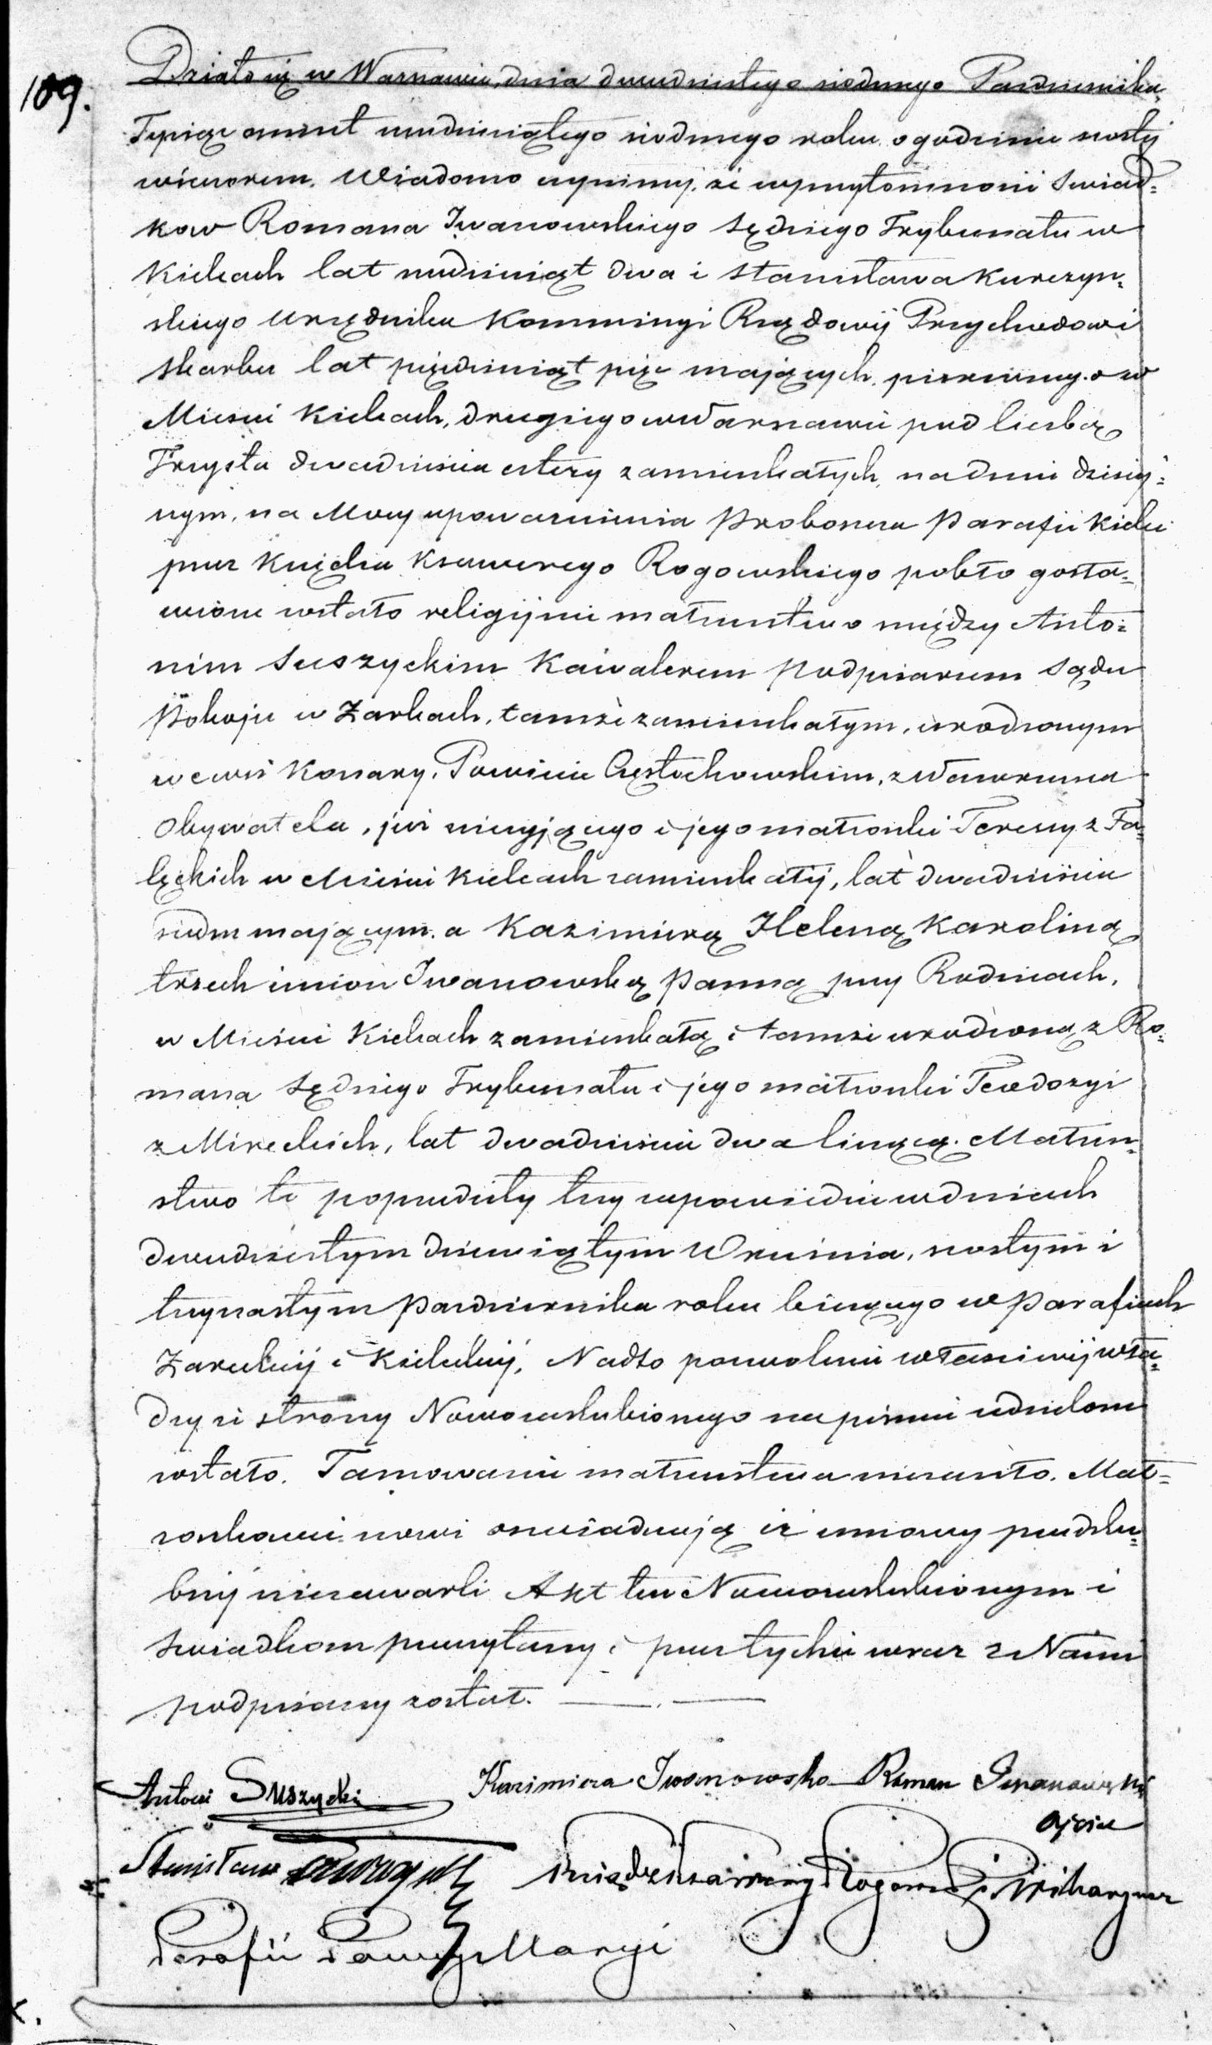 109.
Działo się w Warszawie, dnia dwudziestego siódmego Października
Tysiąc ośmset sześćdziesiątego siódmego roku o godzinie szóstej
wieczorem. Wiadomo czynimy, że w przytomności Świad=
ków Romana Iwanowskiego Sędziego Trybunału w
Kielcach lat sześćdziesiąt dwa i Stanisława Kurczyń=
skiego Urzędnika Kommissyi Rządowéj Przychodów i
Skarbu lat pięćdziesiąt pięć mających, pierwszego w
Mieście Kielcach, drugiego w Warszawie pod liczbą
Trzysta dwadzieścia cztery zamieszkałych, na dniu dzisiej=
szym, na Mocy upoważnienia Proboszcza Parafii Kielce
przez Księdza Ksawerego Rogowskiego pobłogosła=
wione zostało religijne małżeństwo między Anto=
nim Suszyckim Kawalerem Podpisarzem Sądu
Pokoju w Żarkach, tamże zamieszkałym, urodzonym
we wsi Konary, Powiecie Częstochowskim, z Wawrzeńca
Obywatela, już nieżyjącego i jego małżonki Teressy z Fa=
lęckich w Mieście Kielcach zamieszkałéj, lat dwadzieścia
siedm mającym, a Kazimirą Heleną Karoliną
trzech imion Iwanowską Panną przy Rodzicach,
w Mieście Kielcach zamieszkałą i tamże urodzoną z Ro=
mana Sędziego Trybunału i jego małżonki Teodozyi
z Mireckich, lat dwadzieścia dwa liczącą. Małżeń=
stwo to poprzedziły trzy zapowiedzie w dniach
dwudziestym dziewiątym Września, szóstym i
trzynastym Października roku bieżącego w Parafiach
Żareckiéj i Kieleckiéj, Nadto pozwolenie właściwéj wła=
dzy ze strony Nowozaślubionego na piśmie udzielone
zostało. Tamowanie małżeństwa nie zaszło. Mał=
żonkowie nowi oświadczają iż umowy przedślu=
bnéj nie zawarli Akt ten Nowozaślubionym i
Świadkom przeczytany i przez tychże wraz z Nami
podpisany został.
Antoni Suszycki Kazimiera Iwanowska Roman Iwanowski
Ojciec
Stanisław Kurczyński Ksiądz Ksawery Rogowski Wikaryusz
Parafii Panny Maryi